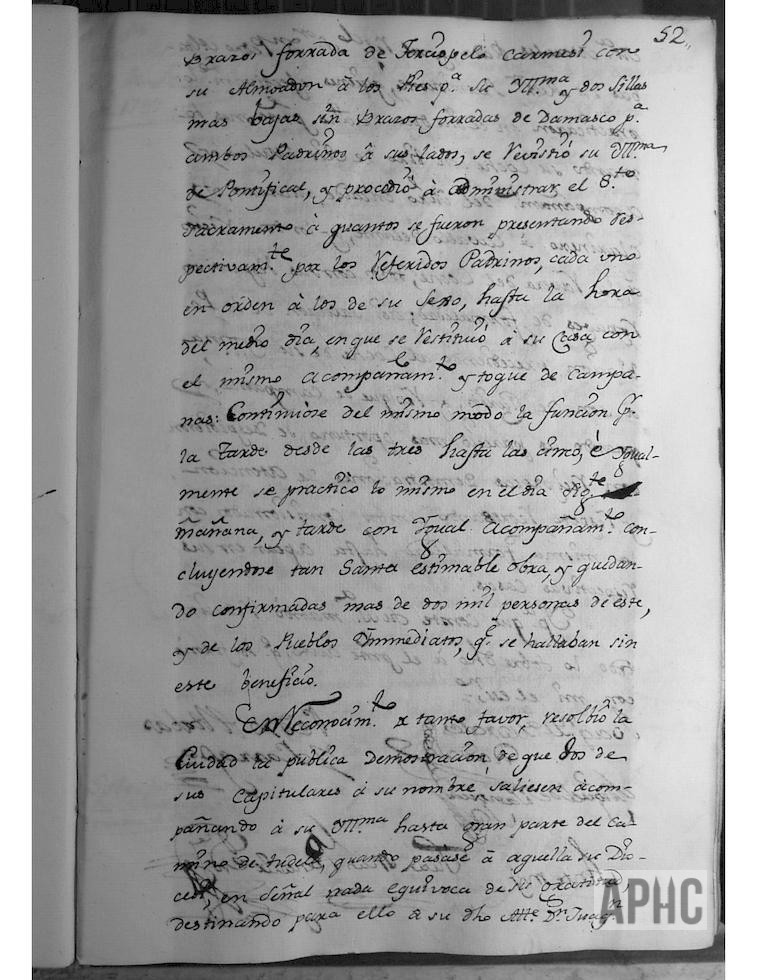 52.,
Brazos forrada de Terciopelo Carmesi con
su Almoadon â los Pies p.ª su Yll.ma y dos Sillas
mas bajas sin Brazos forradas de Damasco p.ª
ambos Padrinos â sus lados, se Revistió su Yll.ma
de Pontifical, y procedió â administrar el S.to
Sacramento â quantos se fueron presentando res-
pectivam.te por los Referidos Padrinos, cada uno
en orden â los de su Sexo, hasta la hora
del medio dia, en que se Restituió â su Casa con
el mismo Acompañam.to y toque de Campa-
nas: Continuóse del mismo modo la funcion p.r
la tarde desde las tres hasta las cinco, è Ygual-
mente se practicó lo mismo en el dia sig.te
mañana, y tarde con Ygual Acompañam.to con-
cluyendose tan Santa estimable obra, y quedan-
do confirmadas mas de dos mil personas de este,
y de los Pueblos Ynmediatos, q.e se hallaban sin
este beneficio.
En Reconocim.to de tanto favor, resolbió la
Ciudad la publica Demostracion de que dos de
sus Capitulares â su nombre saliesen âcom-
pañando â su Yll.ma hasta gran parte del Ca-
mino de tudela, quando pasase â aquella su Dio-
cesi, en Señal nada equivoca de su gratitud,
destinando para ello â su dho Alc.e D.n Juaq.n
APHC